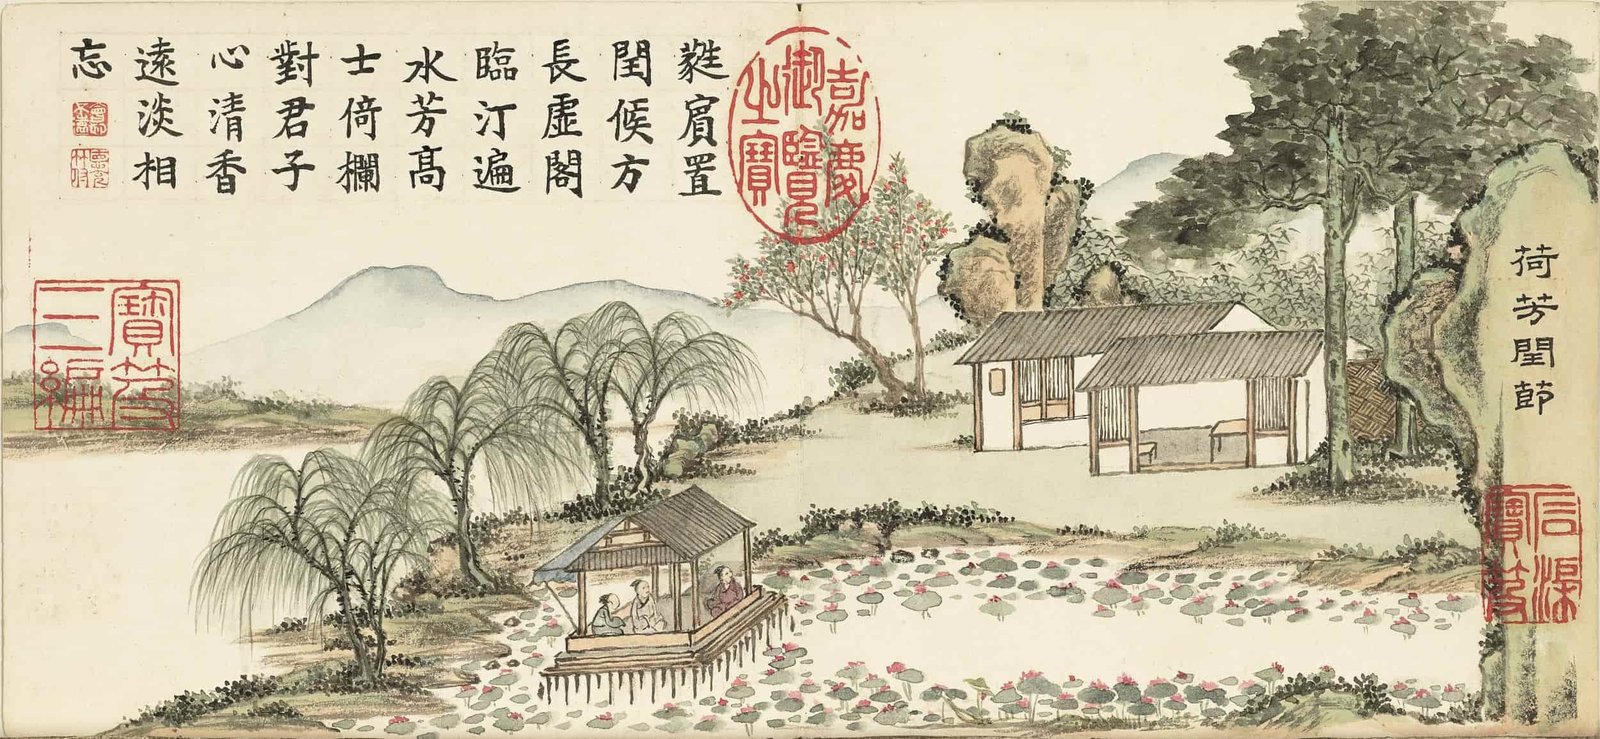 荷芳閏節
石渠寶笈
嘉慶御覽之寶
蕤賔置
閏候方
長虛閣
臨汀遍
水芳高
士倚欄
對君子
心清香
遠淡相
忘
寶笈三編